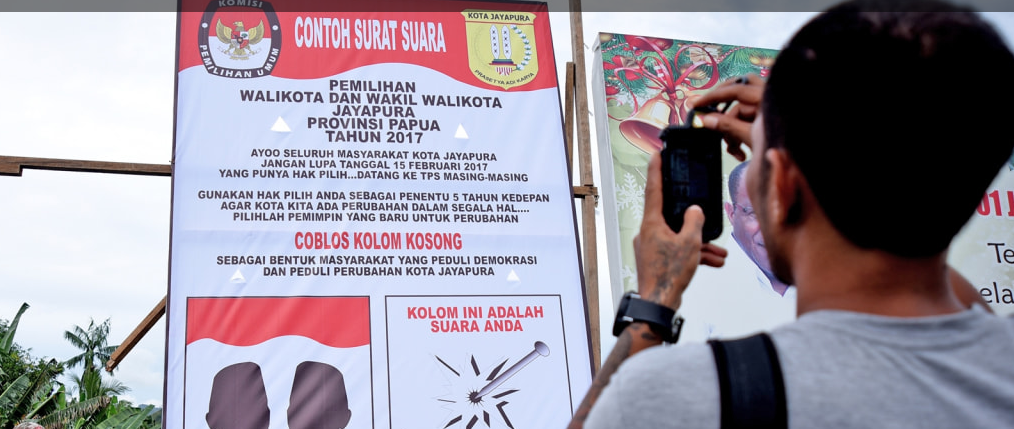 KOMISI
PEMILIHAN UMUM
CONTOH SURAT SUARA
KOTA JAYAPURA
PEMILIHAN
WALIKOTA DAN WAKIL WALIKOTA
JAYAPURA
PROVINSI PAPUA
TAHUN 2017
AYOO SELURUH MASYARAKAT KOTA JAYAPURA
JANGAN LUPA TANGGAL 15 FEBRUARI 2017
YANG PUNYA HAK PILIH...DATANG KE TPS MASING-MASING
GUNAKAN HAK PILIH ANDA SEBAGAI PENENTU 5 TAHUN KEDEPAN
AGAR KOTA KITA ADA PERUBAHAN DALAM SEGALA HAL....
PILIHLAH PEMIMPIN YANG BARU UNTUK PERUBAHAN
COBLOS KOLOM KOSONG
SEBAGAI BENTUK MASYARAKAT YANG PEDULI DEMOKRASI
DAN PEDULI PERUBAHAN KOTA JAYAPURA
KOLOM INI ADALAH
SUARA ANDA